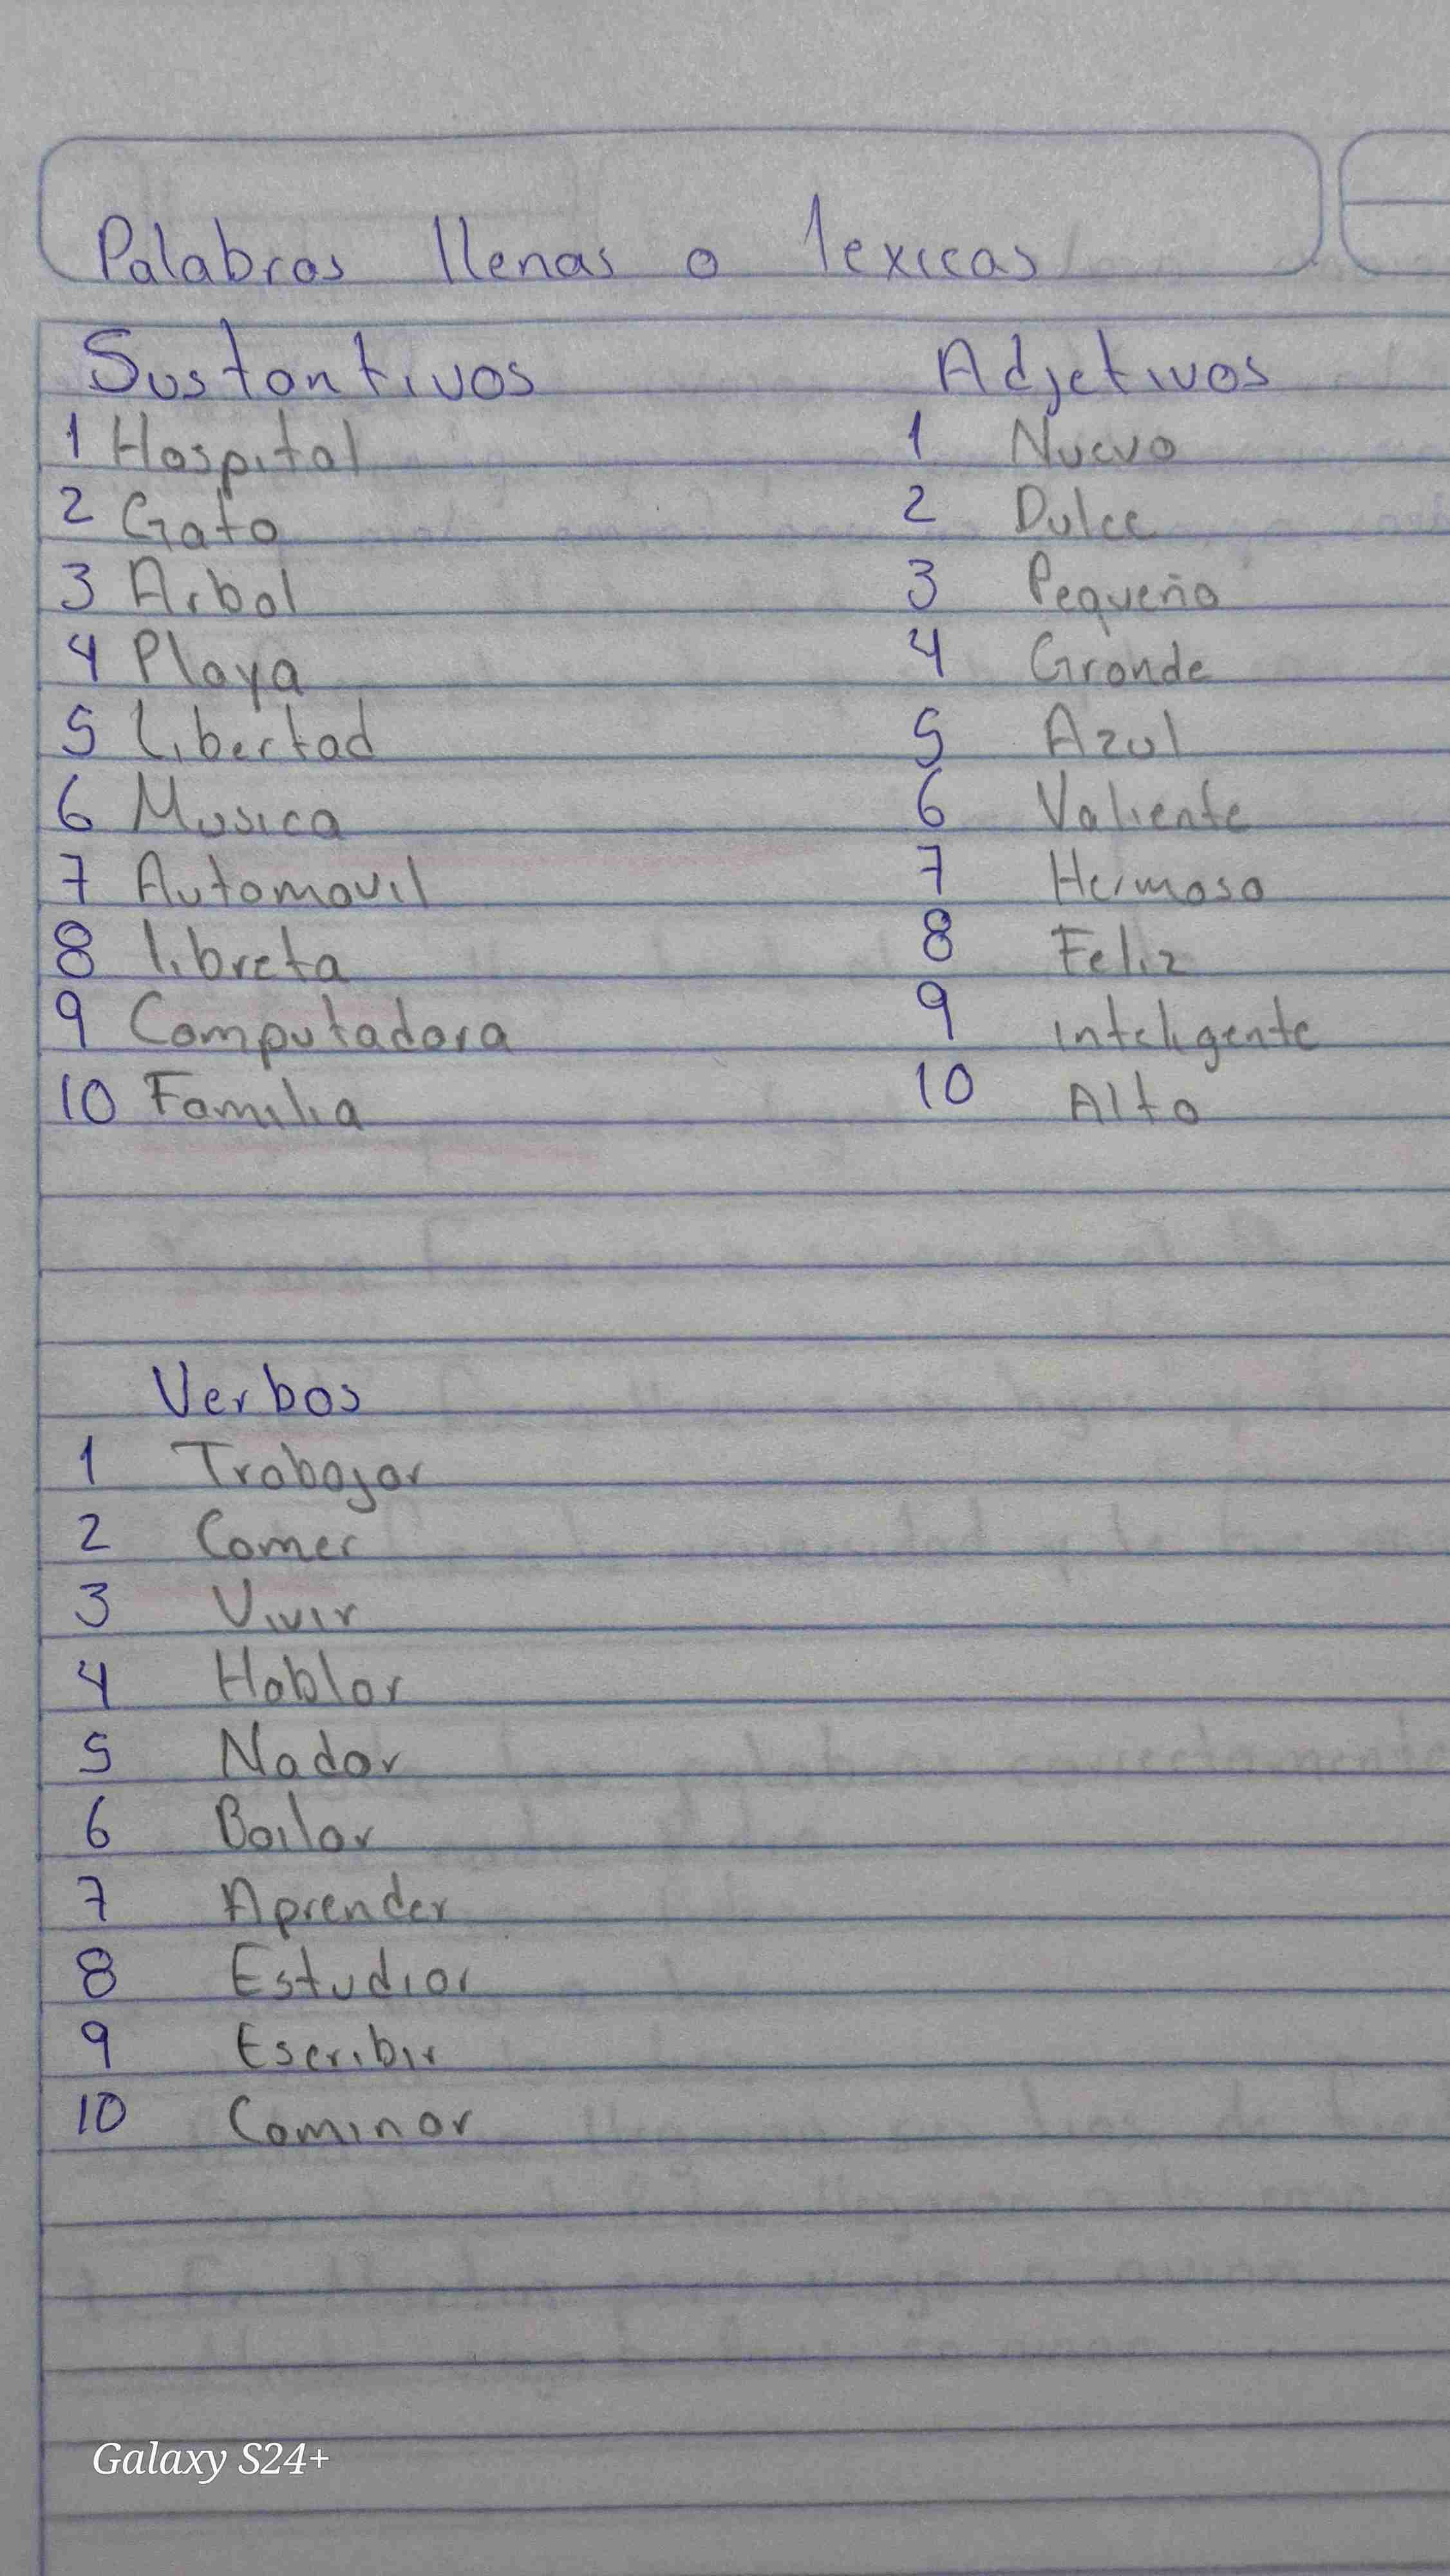 Palabras llenas o lexicas
Sustantivos
1 Hospital
2 Gato
3 Arbol
4 Playa
5 Libertad
6 Musica
7 Automovil
8 libreta
9 Computadora
10 Familia
Adjetivos
1 Nuevo
2 Dulce
3 Pequeño
4 Grande
5 Azul
6 Valiente
7 Hermoso
8 Feliz
9 inteligente
10 Alto
Verbos
1 Trabajar
2 Comer
3 Vivir
4 Hablar
5 Nadar
6 Bailar
7 Aprender
8 Estudiar
9 Escribir
10 Caminar
Galaxy S24+